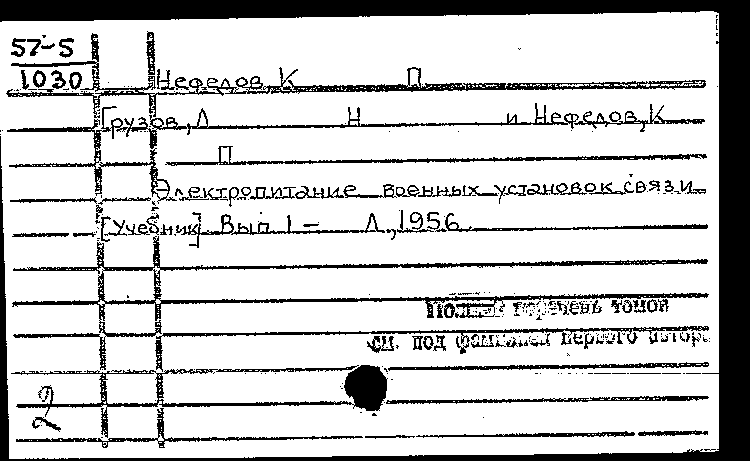 57-5
1030
Нефедов, К П
Грузов, Л Н и Нефедов, К
П
Электропитание военных установок связи
[Учебник] Вып 1 - Л, 1956
Полный перечень томов
см. под фамилией первого автора
2